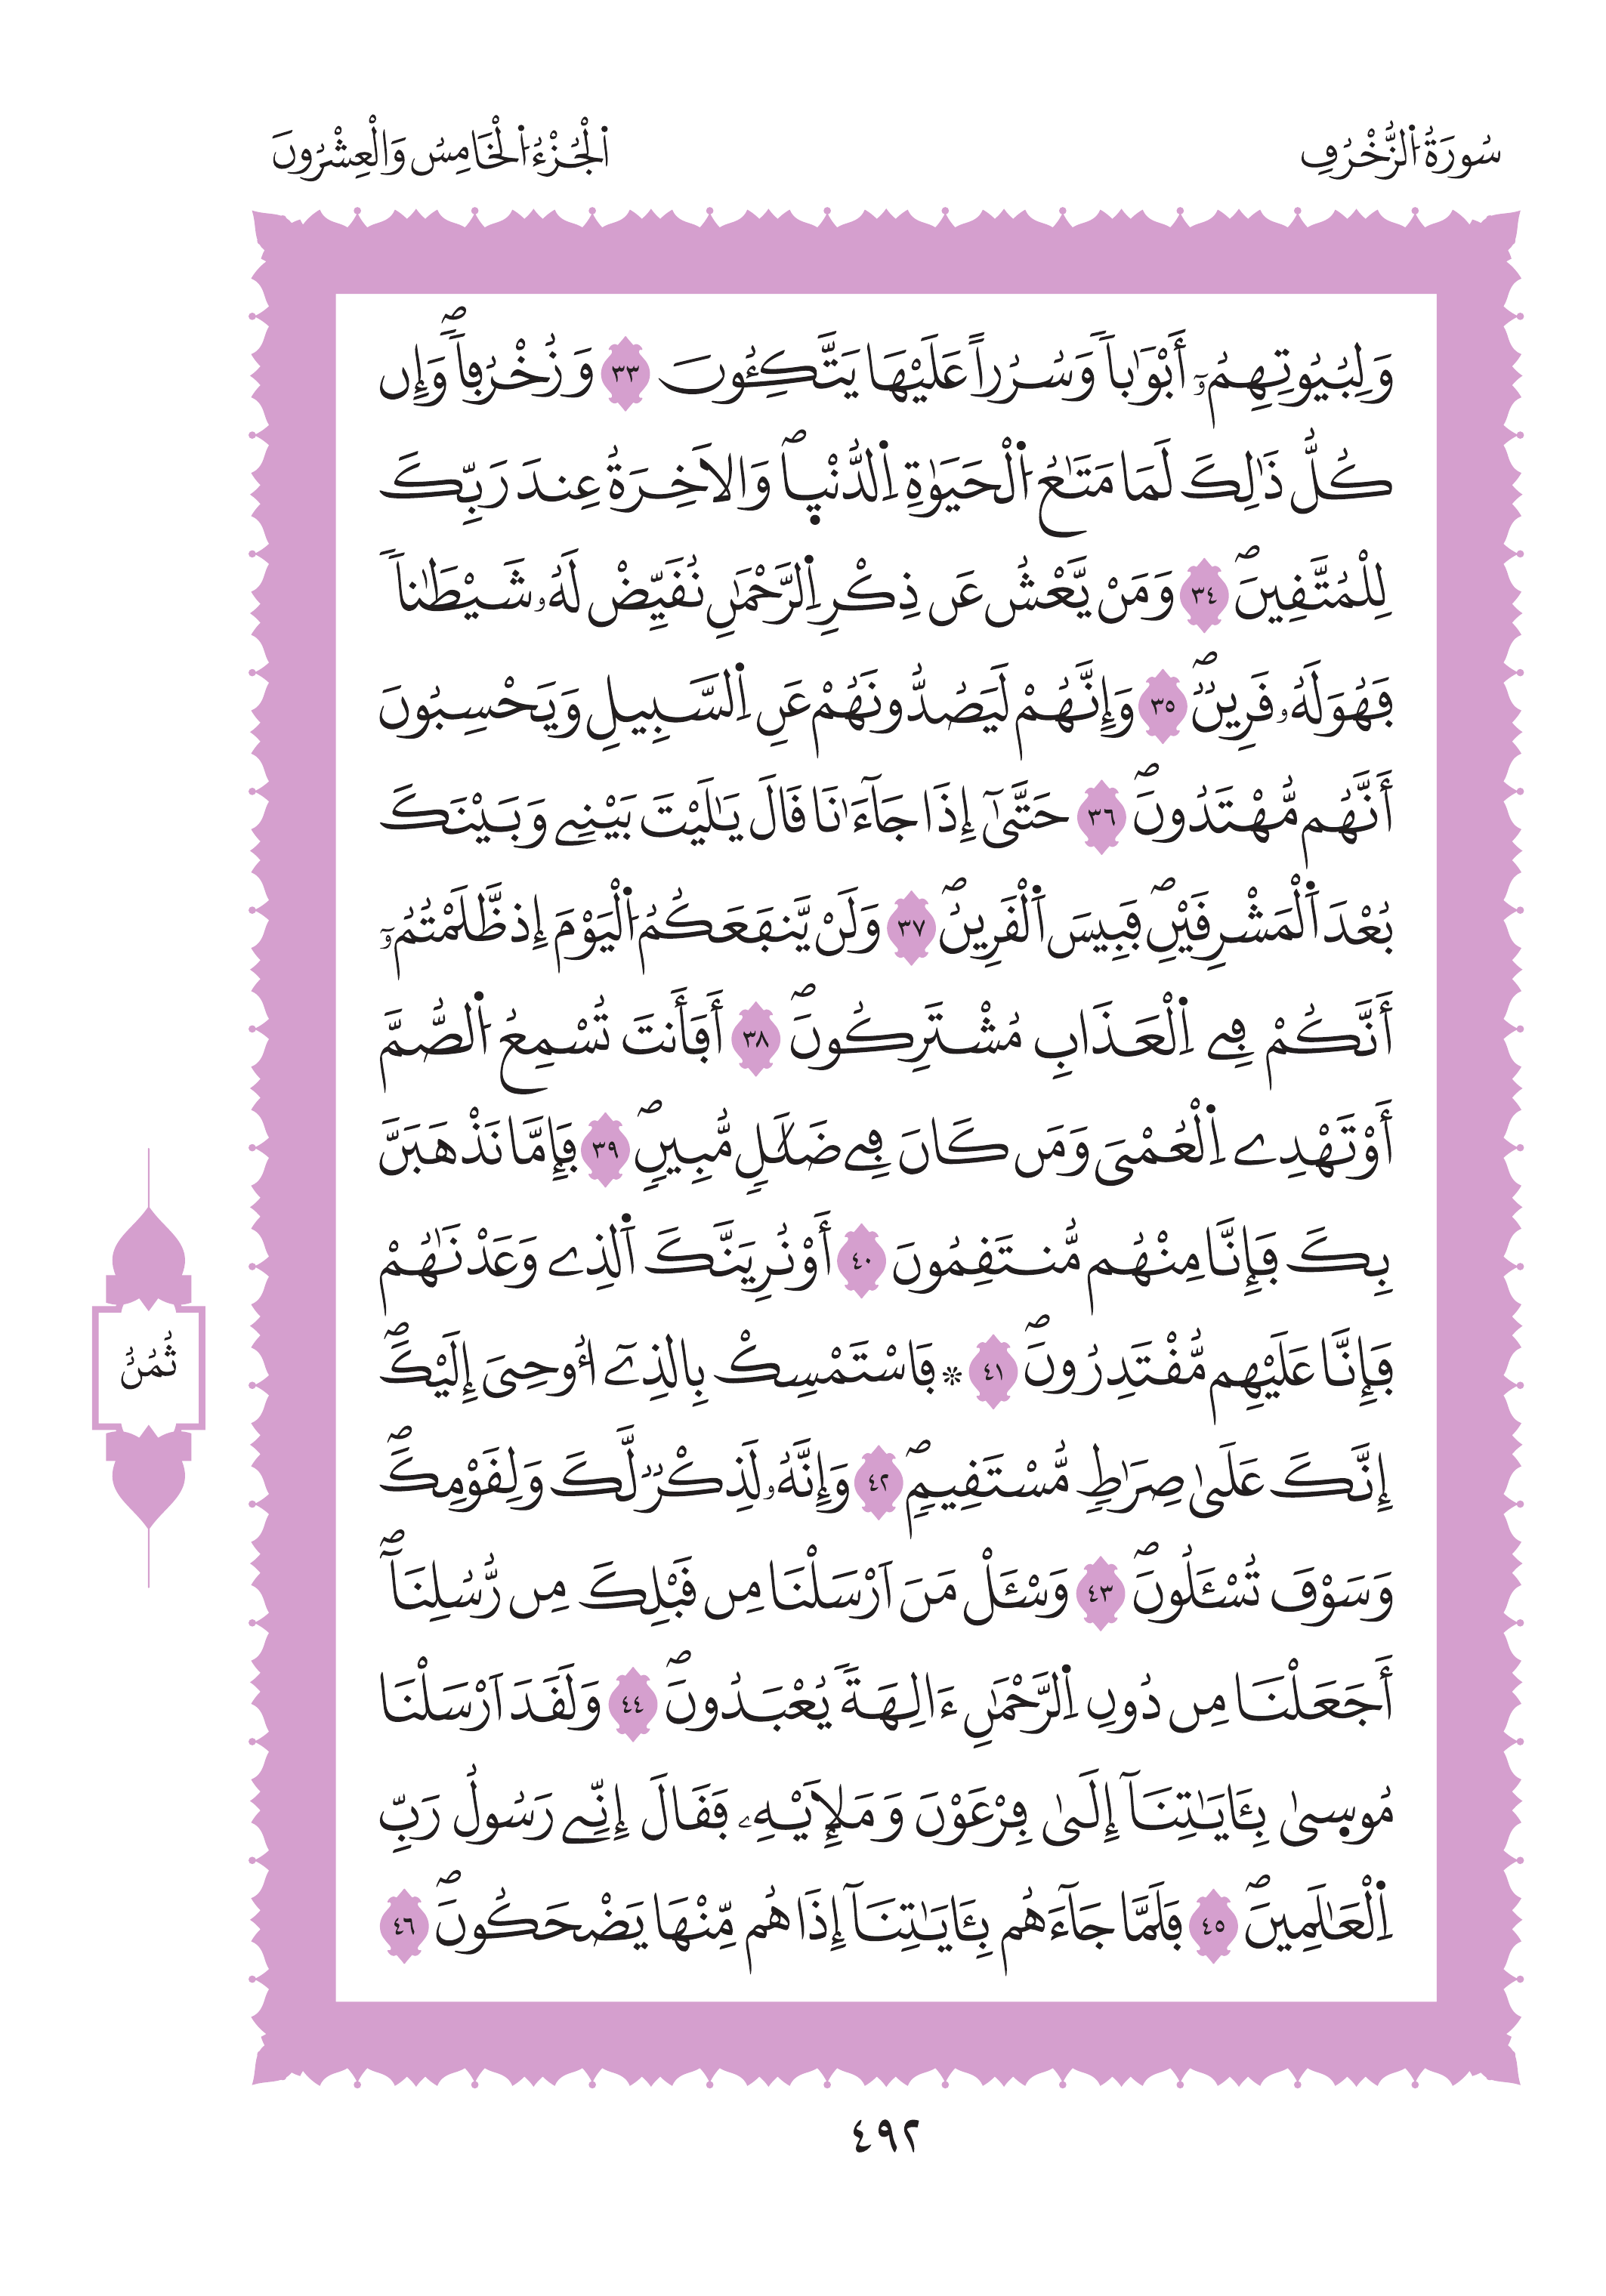 سُورَةُ اُ۬لزُّخْرُفِ
اَ۬لْجُزْءُ اُ۬لْخَامِسُ وَالْعِشْرُونَ
وَلِبُيُوتِهِمُۥٓ أَبْوَٰباٗ وَسُرُراً عَلَيْهَا يَتَّكِـُٔونَ ٣٣ وَزُخْرُفاٗۖ وَإِن
كُلُّ ذَٰلِكَ لَمَا مَتَٰعُ اُ۬لْحَيَوٰةِ اِ۬لدُّنْي۪اۖ وَالاَخِرَةُ عِندَ رَبِّكَ
لِلْمُتَّقِينَۖ ٣٤ وَمَنْ يَّعْشُ عَن ذِكْرِ اِ۬لرَّحْمَٰنِ نُقَيِّضْ لَهُۥ شَيْطَٰناٗ
فَهُوَ لَهُۥ قَرِينٞۖ ٣٥ وَإِنَّهُمْ لَيَصُدُّونَهُمْ عَنِ اِ۬لسَّبِيلِ وَيَحْسِبُونَ
أَنَّهُم مُّهْتَدُونَۖ ٣٦ حَتَّىٰٓ إِذَا جَآءَٰنَا قَالَ يَٰلَيْتَ بَيْنِے وَبَيْنَكَ
بُعْدَ اَ۬لْمَشْرِقَيْنِۖ فَبِيسَ اَ۬لْقَرِينُۖ ٣٧ وَلَنْ يَّنفَعَكُمُ اُ۬لْيَوْمَ إِذ ظَّلَمْتُمُۥٓ
أَنَّكُمْ فِے اِ۬لْعَذَابِ مُشْتَرِكُونَۖ ٣٨ أَفَأَنتَ تُسْمِعُ اُ۬لصُّمَّ
أَوْ تَهْدِے اِ۬لْعُمْىَ وَمَن كَانَ فِے ضَلَٰلٖ مُّبِينٖۖ ٣٩ فَإِمَّا نَذْهَبَنَّ
بِكَ فَإِنَّا مِنْهُم مُّنتَقِمُونَ ٤٠ أَوْ نُرِيَنَّكَ اَ۬لذِے وَعَدْنَٰهُمْ
فَإِنَّا عَلَيْهِم مُّقْتَدِرُونَۖ ٤١ ۞ فَاسْتَمْسِكْ بِالذِےٓ أُوحِىَ إِلَيْكَۖ
إِنَّكَ عَلَىٰ صِرَٰطٖ مُّسْتَقِيمٖۖ ٤٢ وَإِنَّهُۥ لَذِكْرٞ لَّكَ وَلِقَوْمِكَۖ
وَسَوْفَ تُسْـَٔلُونَۖ ٤٣ وَسْـَٔلْ مَنَ اَرْسَلْنَا مِن قَبْلِكَ مِن رُّسُلِنَآۖ
أَجَعَلْنَا مِن دُونِ اِ۬لرَّحْمَٰنِ ءَالِهَةٗ يُعْبَدُونَۖ ٤٤ وَلَقَدَ اَرْسَلْنَا
مُوس۪ىٰ بِـَٔايَٰتِنَآ إِلَىٰ فِرْعَوْنَ وَمَلإِيْهِۦ فَقَالَ إِنِّے رَسُولُ رَبِّ
اِ۬لْعَٰلَمِينَۖ ٤٥ فَلَمَّا جَآءَهُم بِـَٔايَٰتِنَآ إِذَا هُم مِّنْهَا يَضْحَكُونَۖ ٤٦
ثُمُنُ
٤٩٢